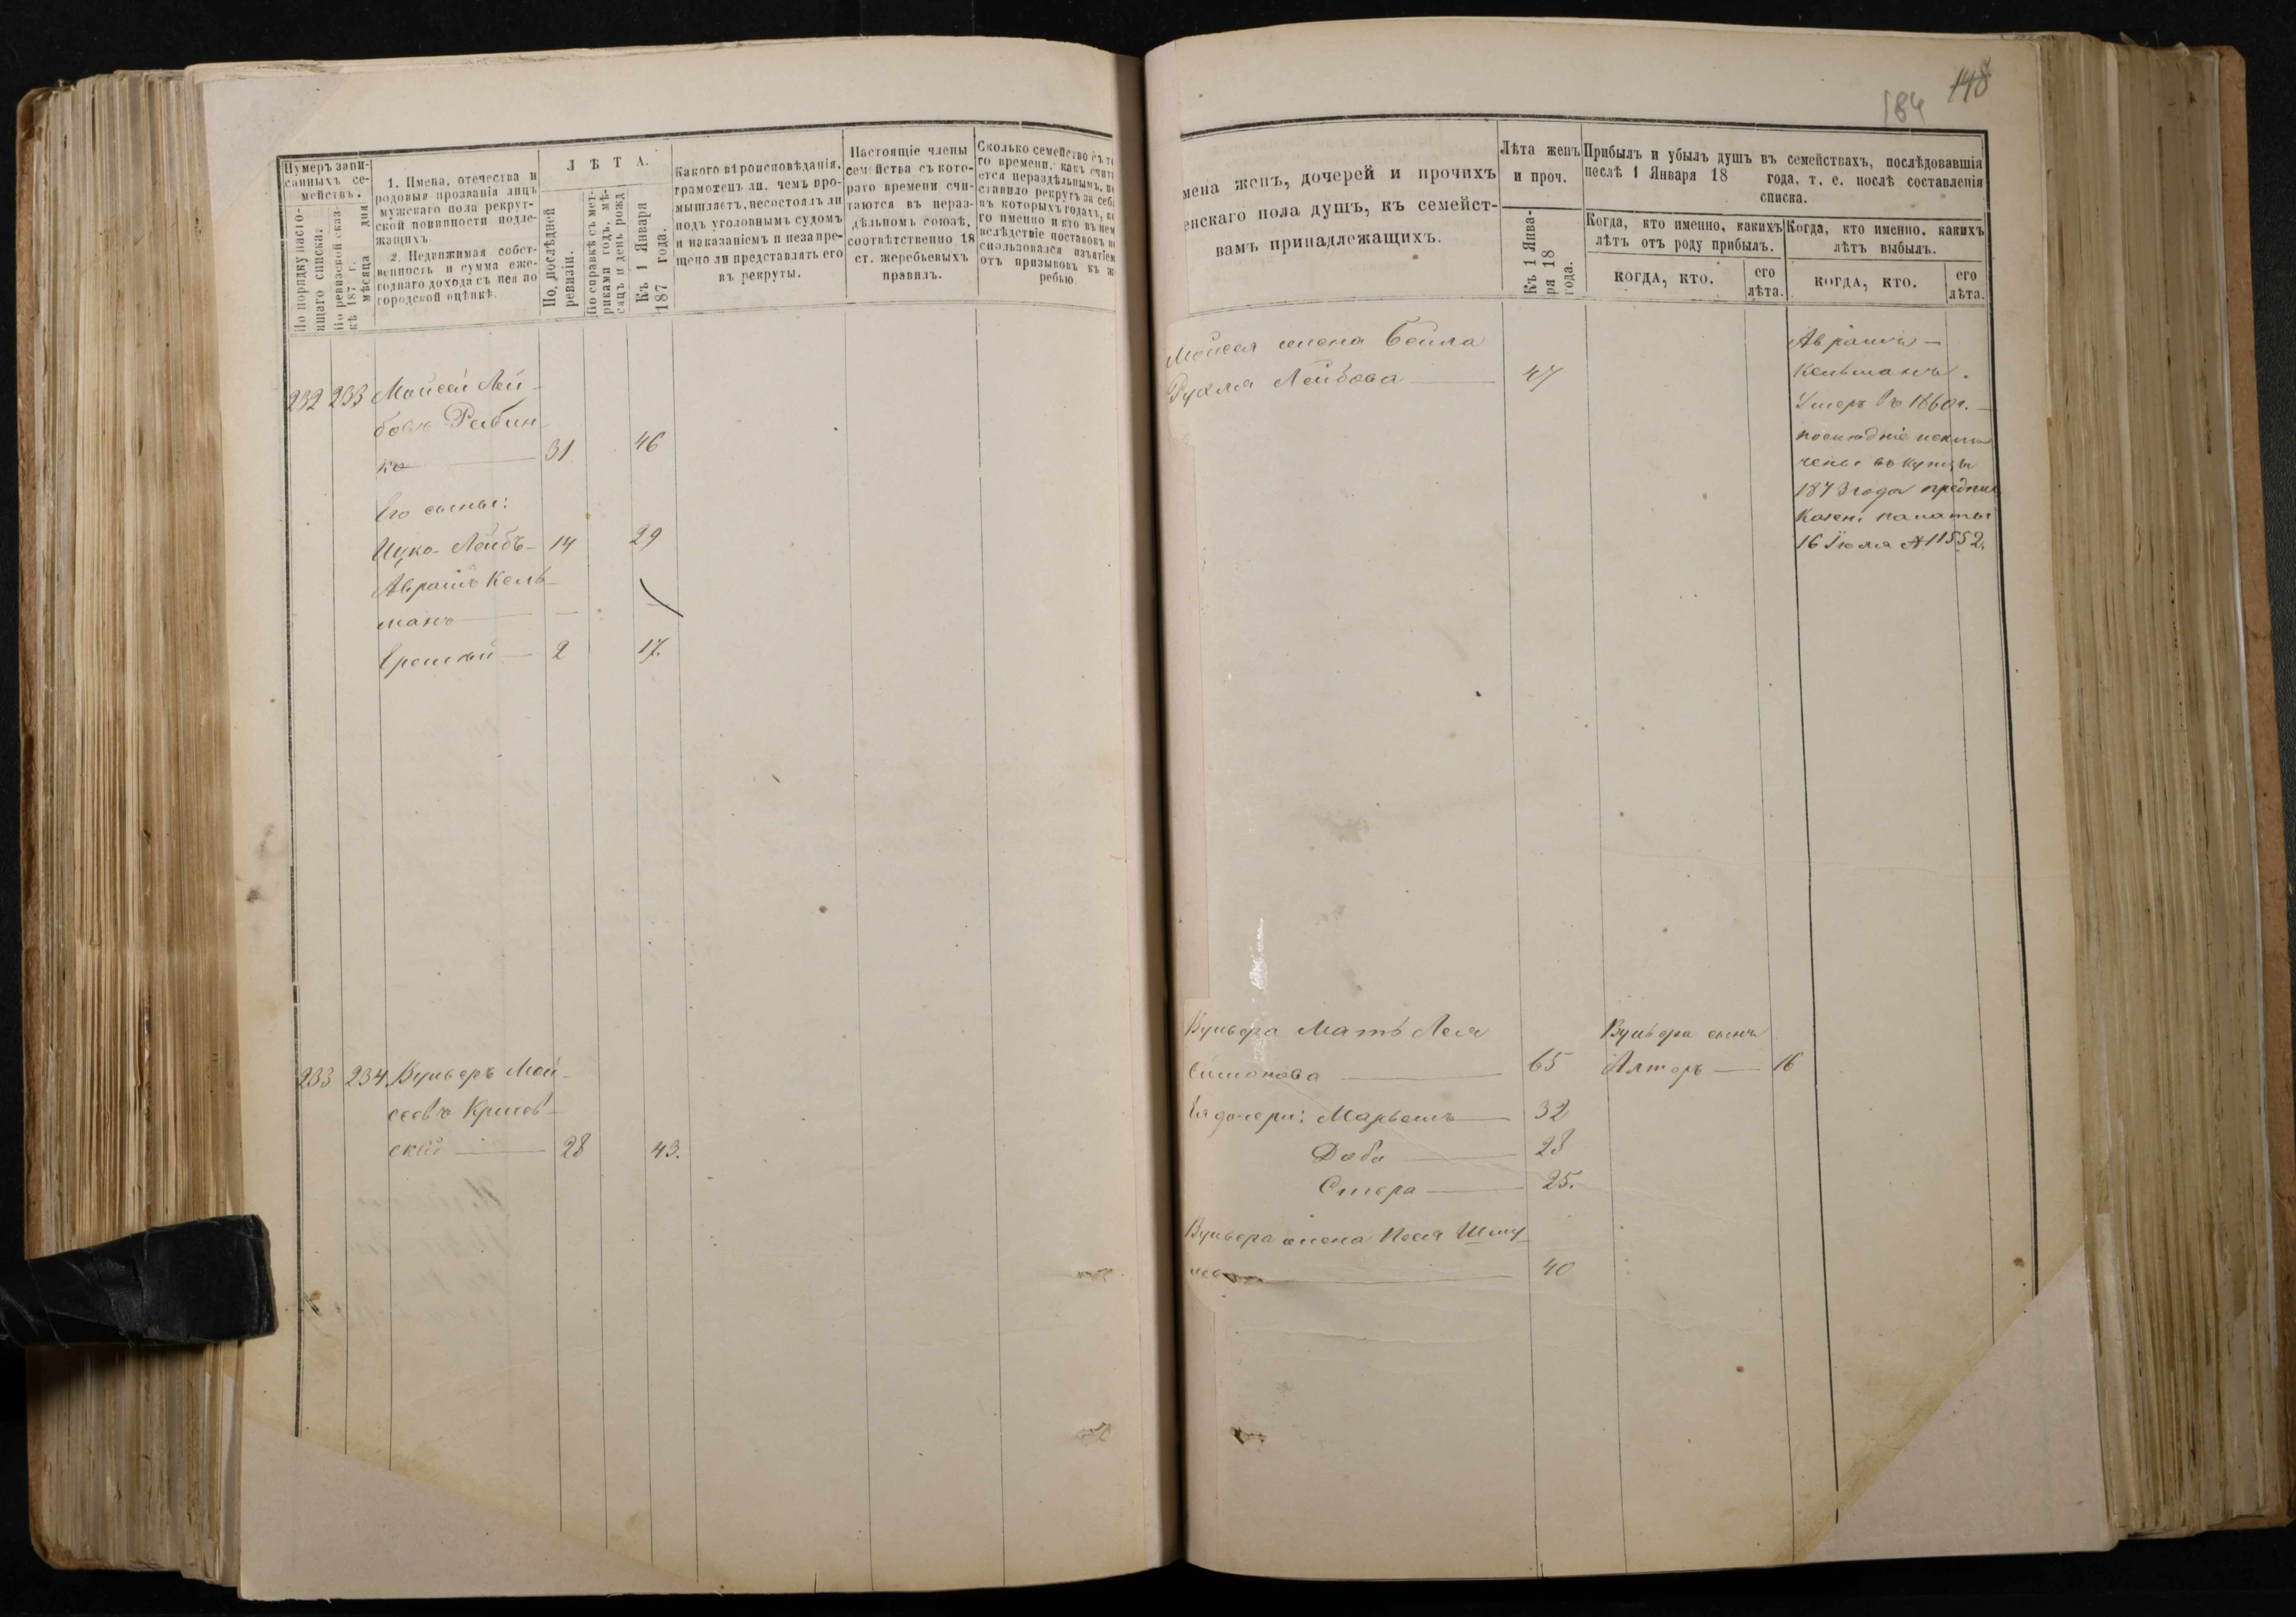 Нумеръ запи-
санныхъ се-
мействъ.
По порядку насто-
ящаго списка.
По ревизской сказ-
кѣ 187 г.
мѣсяца дня
1. Имена, отечества и
родовыя прозванія лицъ
мужскаго пола рекрут-
ской повинности подле-
жащихъ.
2. Недвижимая собст-
венность и сумма еже-
годнаго дохода съ нея по
городской оцѣнкѣ.
ЛѢТА.
По послѣдней
ревизіи.
По справкѣ съ мет-
риками годъ, мѣ-
сяцъ и день рожд
Къ 1 Января
187 года.
Какого вѣроисповѣданія,
грамотенъ ли, чемъ про-
мышляетъ, несостоялъ ли
подъ уголовнымъ судомъ
и наказаніемъ и незапре-
щено ли представлять его
въ рекруты.
Настоящіе члены
семейства съ кото-
раго времени счи-
таются въ нераз-
дѣльномъ союзѣ,
соотвѣтственно 18
ст. жеребьевыхъ
правилъ.
Сколько семейство съ то
го времени, какъ счита
ется нераздѣльнымъ, по
ставило рекрутъ за себя
въ которыхъ годахъ, ко
го именно и кто въ нем
вслѣдствіе поставокъ во
спользовался изъятіем
отъ призывовъ къ ж
ребью
232 233 Мойсей Лей-
бовъ Рабин-
ко 31 46
Его сыны:
Ицко-Лейбъ- 14 29
Аврамъ Кель-
манъ — —
2 17.
233 234 Вульфъ Мой-
сеевъ
скій 28 43.
184 148
мена женъ, дочерей и прочихъ
енскаго пола душъ, къ семейст-
вамъ принадлежащихъ.
Лѣта женъ
и проч.
Къ 1 Янва-
ря 18
года.
Прибыль и убыль душъ въ семействахъ, послѣдовавшія
песлѣ 1 Января 18 года, т. е. послѣ составленія
списка.
Когда, кто именно, какихъ
лѣтъ отъ роду прибылъ.
Когда, кто именно, какихъ
лѣтъ выбылъ.
КОГДА, КТО.
его
лѣта.
КОГДА, КТО.
его
лѣта.
Мойсея жена Бейла
Рухля Лейбова 47
Аврамъ —
Кельманъ.
Умеръ въ 1860г. —
последніе исклю
чены въ купцы
1873 года предпис
Казен. палаты
16 Іюля № 11552.
мать Лея
Симонова 65
Ея дочери: Марьемъ 32
Доба 28
Стера 25.
жена Песя Шму
40
сынъ
Алтеръ 16